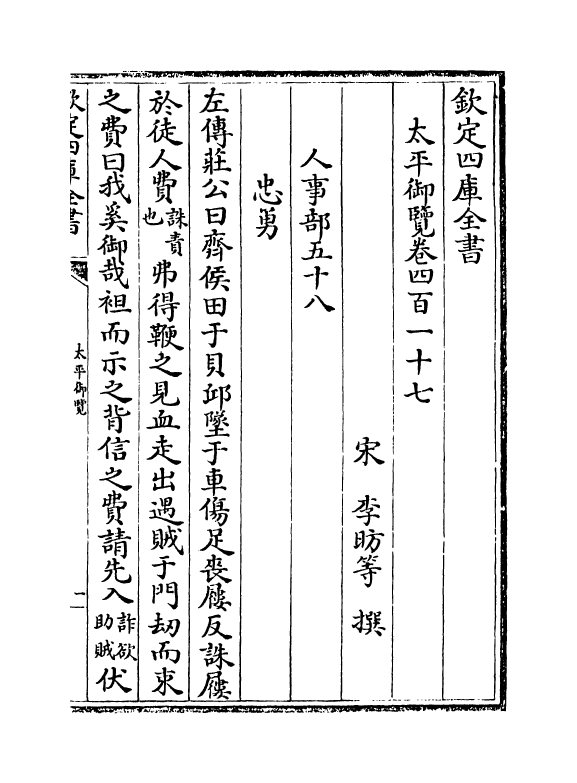 欽定四庫全書
太平御覽卷四百一十七
宋 李昉等 撰
人事部五十八
忠勇
左傳莊公曰齊侯田于貝邱墜于車傷足喪屨反誅屨
於徒人費誅責也弗得鞭之見血走出遇賊于門刼而束
之費曰我奚御哉袒而示之背信之費請先入詐欲助賊伏
欽定四庫全書
太平御覽
二